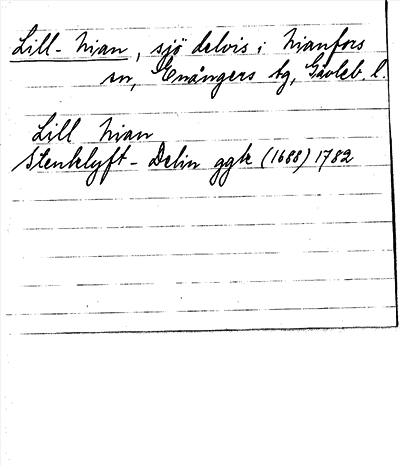 Lill-Nian, sjö delvis i Nianfors
sn, Enångers tg, Gävleb. l.
Lill Nian
Stenklyft-Delin ggk (1688) 1782